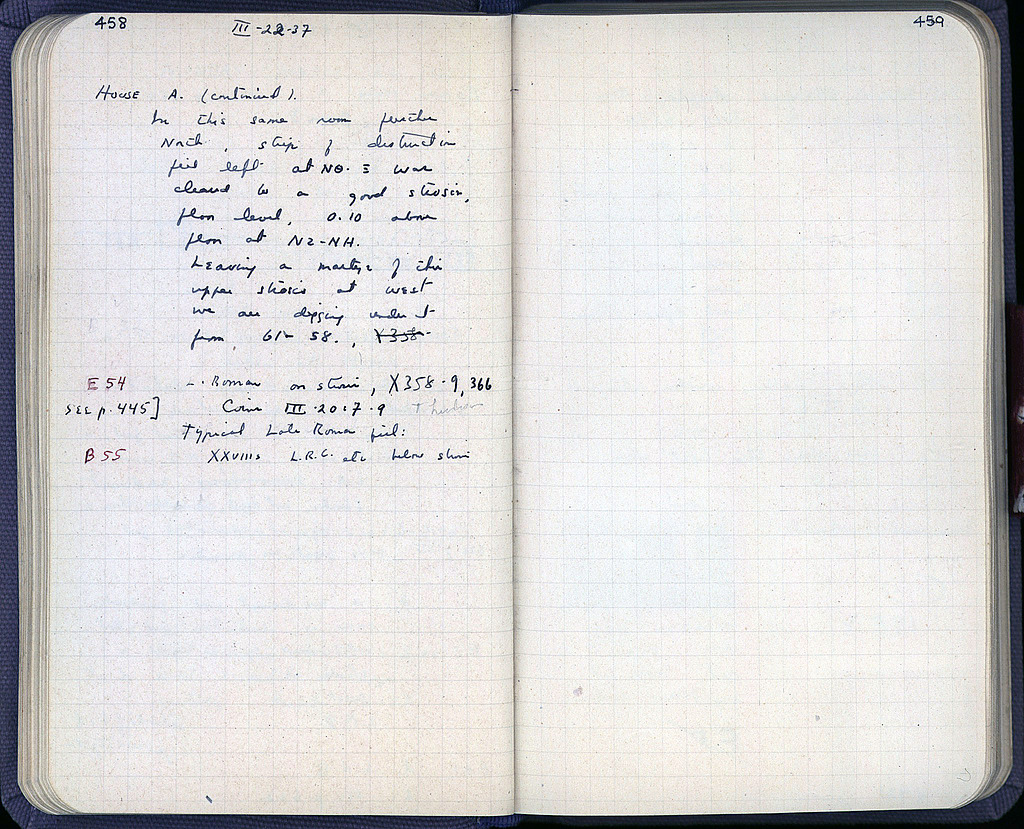 458
III-22-37
House A. (continued).
In this same room further
North, strip of destruction
fill left at NΘ-Ξ was
cleared to a good strosis,
floor level, 0.10 above
floor at NZ-NH.
Leaving a martyr of this
upper strosis at west
we are digging under it
from, 61-58., X358-
E 54 L. Roman on strosis, X358-9, 366
SEE p. 445] Coins III-20:7-9
Typical Late Roman fill:
B 55 L.R.C. etc below strosis
459